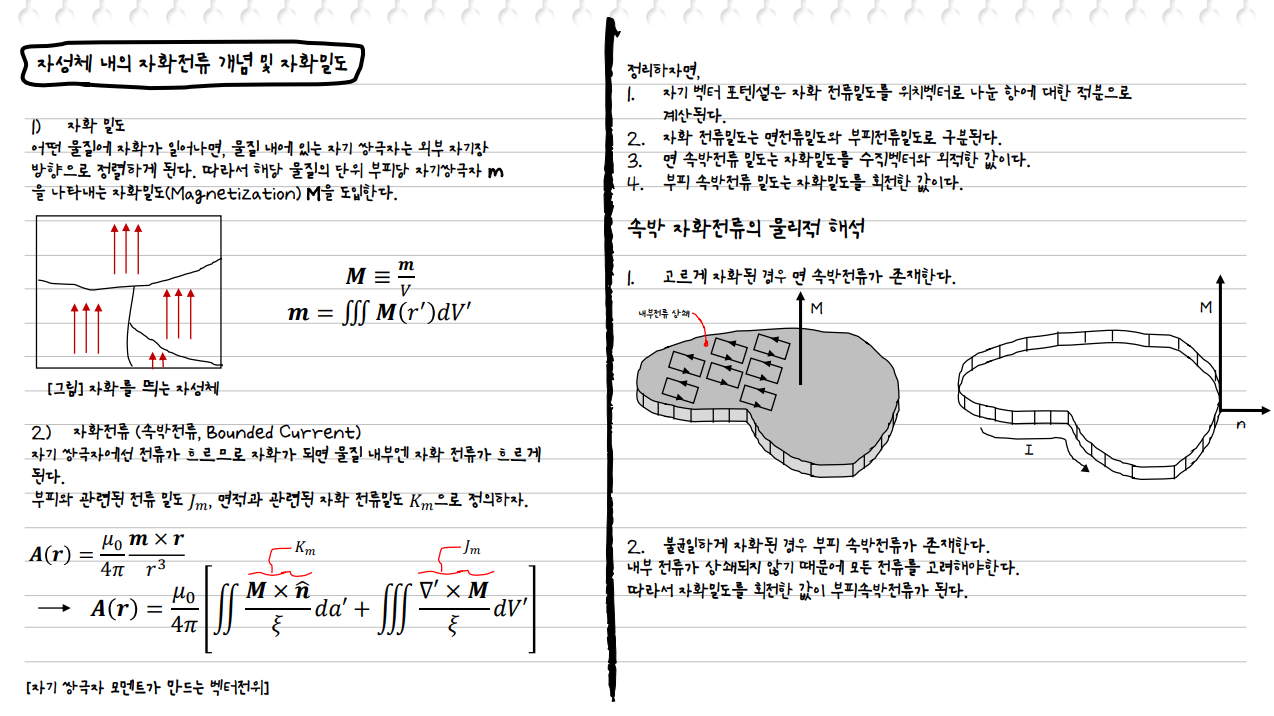 자성체 내의 자화전류 개념 및 자화밀도
1) 자화 밀도
어떤 물질에 자화가 일어나면, 물질 내에 있는 자기 쌍극자는 외부 자기장
방향으로 정렬하게 된다. 따라서 해당 물질의 단위 부피당 자기쌍극자 m
을 나타내는 자화밀도(Magnetization) M을 도입한다.
M ≡ m/V
m = ∭ M(r′)dV′
[그림] 자화를 띄는 자성체
2) 자화전류 (속박전류, Bounded Current)
자기 쌍극자에선 전류가 흐르므로 자화가 되면 물질 내부엔 자화 전류가 흐르게
된다.
부피와 관련된 전류 밀도 J_m, 면적과 관련된 자화 전류밀도 K_m으로 정의하자.
A(r) = μ₀/4π (m × r)/r³
K_m
J_m
→ A(r) = μ₀/4π [∬ (M × n̂)/ξ da′ + ∭ (∇′ × M)/ξ dV′]
[자기 쌍극자 모멘트가 만드는 벡터전위]
정리하자면,
1. 자기 벡터 포텐셜은 자화 전류밀도를 위치벡터로 나눈 항에 대한 적분으로
계산된다.
2. 자화 전류밀도는 면전류밀도와 부피전류밀도로 구분된다.
3. 면 속박전류 밀도는 자화밀도를 수직벡터와 외적한 값이다.
4. 부피 속박전류 밀도는 자화밀도를 회전한 값이다.
속박 자화전류의 물리적 해석
1. 고르게 자화된 경우 면 속박전류가 존재한다.
내부전류 상쇄
M
M
n
I
2. 불균일하게 자화된 경우 부피 속박전류가 존재한다.
내부 전류가 상쇄되지 않기 때문에 모든 전류를 고려해야한다.
따라서 자화밀도를 회전한 값이 부피속박전류가 된다.